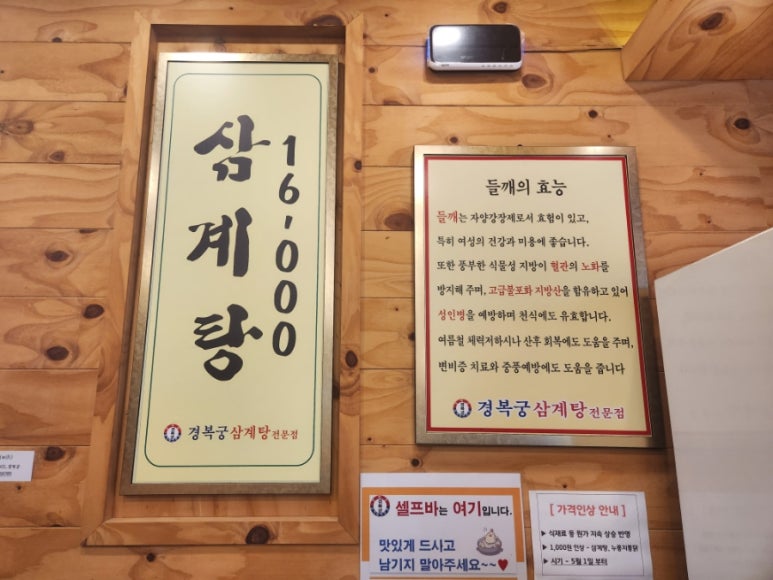 삼계탕
16,000
경복궁삼계탕전문점
들깨의 효능
들깨는 자양강장제로서 효험이 있고,
특히 여성의 건강과 미용에 좋습니다.
또한 풍부한 식물성 지방이 혈관의 노화를
방지해 주며, 고급불포화 지방산을 함유하고 있어
성인병을 예방하며 천식에도 유효합니다.
여름철 체력저하시나 산후 회복에도 도움을 주며,
변비증 치료와 중풍예방에도 도움을 줍니다
경복궁삼계탕전문점
셀프바는 여기입니다.
맛있게 드시고
남기지 말아주세요~~♥
[ 가격인상 안내 ]
▶ 식재료 등 원가 지속 상승 반영
▶ 1,000원 인상 - 삼계탕, 누룽지통닭
▶ 시기 - 5월 1일 부터